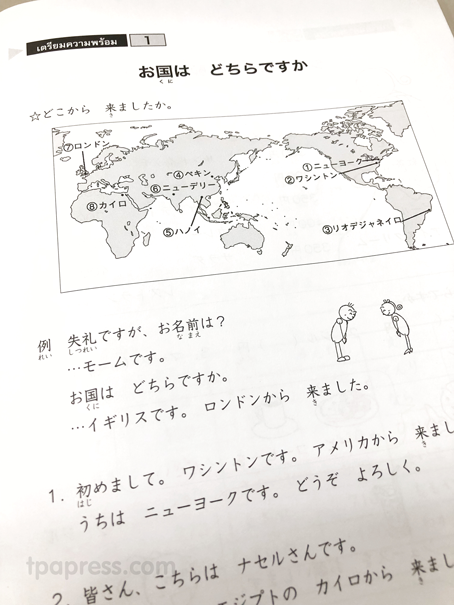 เตรียมความพร้อม 1
お国は どちらですか
くに
☆どこから 来ましたか。
き
⑦ロンドン
④ペキン
①ニューヨーク
⑥ニューデリー
②ワシントン
⑧カイロ
⑤ハノイ
③リオデジャネイロ
例 失礼ですが、お名前は?
れい しつれい なまえ
…モームです。
お国は どちらですか。
くに
…イギリスです。 ロンドンから 来ました。
き
1. 初めまして。 ワシントンです。 アメリカから 来まし
はじ き
うちは ニューヨークです。 どうぞ よろしく。
2. 皆さん、こちらは ナセルさんです。
エジプトの カイロから 来まし
tpapress.com